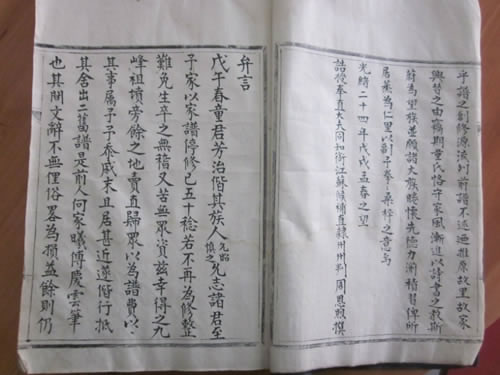 乎譜之創修源流列前譜不述遞推原故里故家
興替之由竊期童氏恪守家風漸進以詩書之教斯
蔚為望族並願諸大族時懷先德力漸積習俾所
居蒸為仁里以副予脊桑梓之意焉
光緒二十四年戊戌孟春之望
誥授奉直大夫同知銜江蘇候補直隸州州判周恩煦撰
弁言
戊午春童君芳治偕其族人允昭慎之允志諸君至
予家以家譜停修已五十稔若不再為修整
難免生卒之無稽又苦無眾資茲幸得之九
峰祖墳旁餘之地賣直歸眾以為譜費以
其事屬予予忝戚末且居甚近遂偕行抵
其舍出二舊譜是前人何家曦傅慶雲筆
也其間文辭不無俚俗畧為損益餘則仍